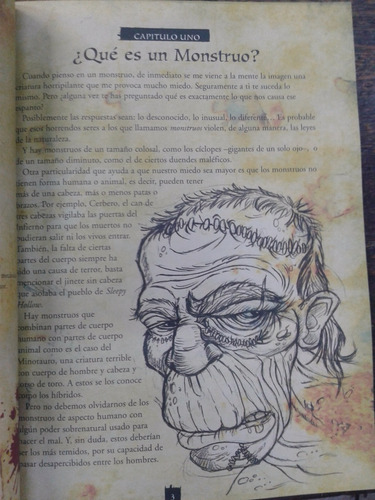 CAPITULO UNO
¿Qué es un Monstruo?
Cuando pienso en un monstruo, de inmediato se me viene a la mente la imagen una
criatura horripilante que me provoca mucho miedo. Seguramente a ti te suceda lo
mismo. Pero ¿alguna vez te has preguntado qué es exactamente lo que nos causa ese
espanto?
Posiblemente las respuestas sean: lo desconocido, lo inusual, lo diferente... Lo probable
que esos horrendos seres a los que llamamos monstruos violen, de alguna manera, las leyes
de la naturaleza.
Y hay monstruos de un tamaño colosal, como los cíclopes –gigantes de un solo ojo–, o
de un tamaño diminuto, como el de ciertos duendes maléficos.
Otra particularidad que ayuda a que nuestro miedo sea mayor es que los monstruos no
tienen forma humana o animal, es decir, pueden tener
más de una cabeza, más o menos patas o
brazos. Por ejemplo, Cerbero, el can de
tres cabezas vigilaba las puertas del
Infierno para que los muertos no
pudieran salir ni los vivos entrar.
También, la falta de ciertas
partes del cuerpo siempre ha
sido una causa de terror, basta
mencionar el jinete sin cabeza
que asolaba el pueblo de Sleepy
Hollow.
Hay monstruos que
combinan partes de cuerpo
humano con partes de cuerpo
animal como es el caso del
Minotauro, una criatura terrible
con cuerpo de hombre y cabeza y
de toro. A estos se los conoce
como los híbridos.
Pero no debemos olvidarnos de los
monstruos de aspecto humano con
algún poder sobrenatural usado para
hacer el mal. Y, sin duda, estos deberían
ser los más temidos, por su capacidad de
pasar desapercibidos entre los hombres.